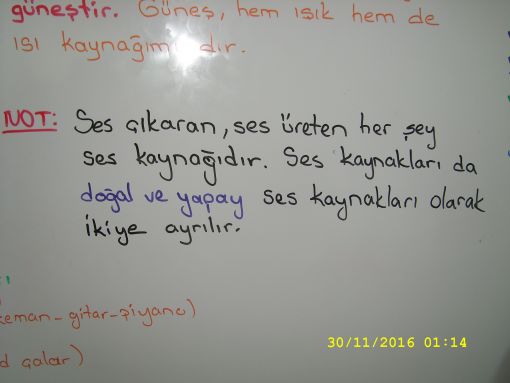 güneştir. Güneş, hem ışık hem de
ısı kaynağımızdır.
NOT: Ses çıkaran, ses üreten her şey
ses kaynağıdır. Ses kaynakları da
doğal ve yapay ses kaynakları olarak
ikiye ayrılır.
keman - gitar - piyano)
çalar)
30/11/2016 01:14